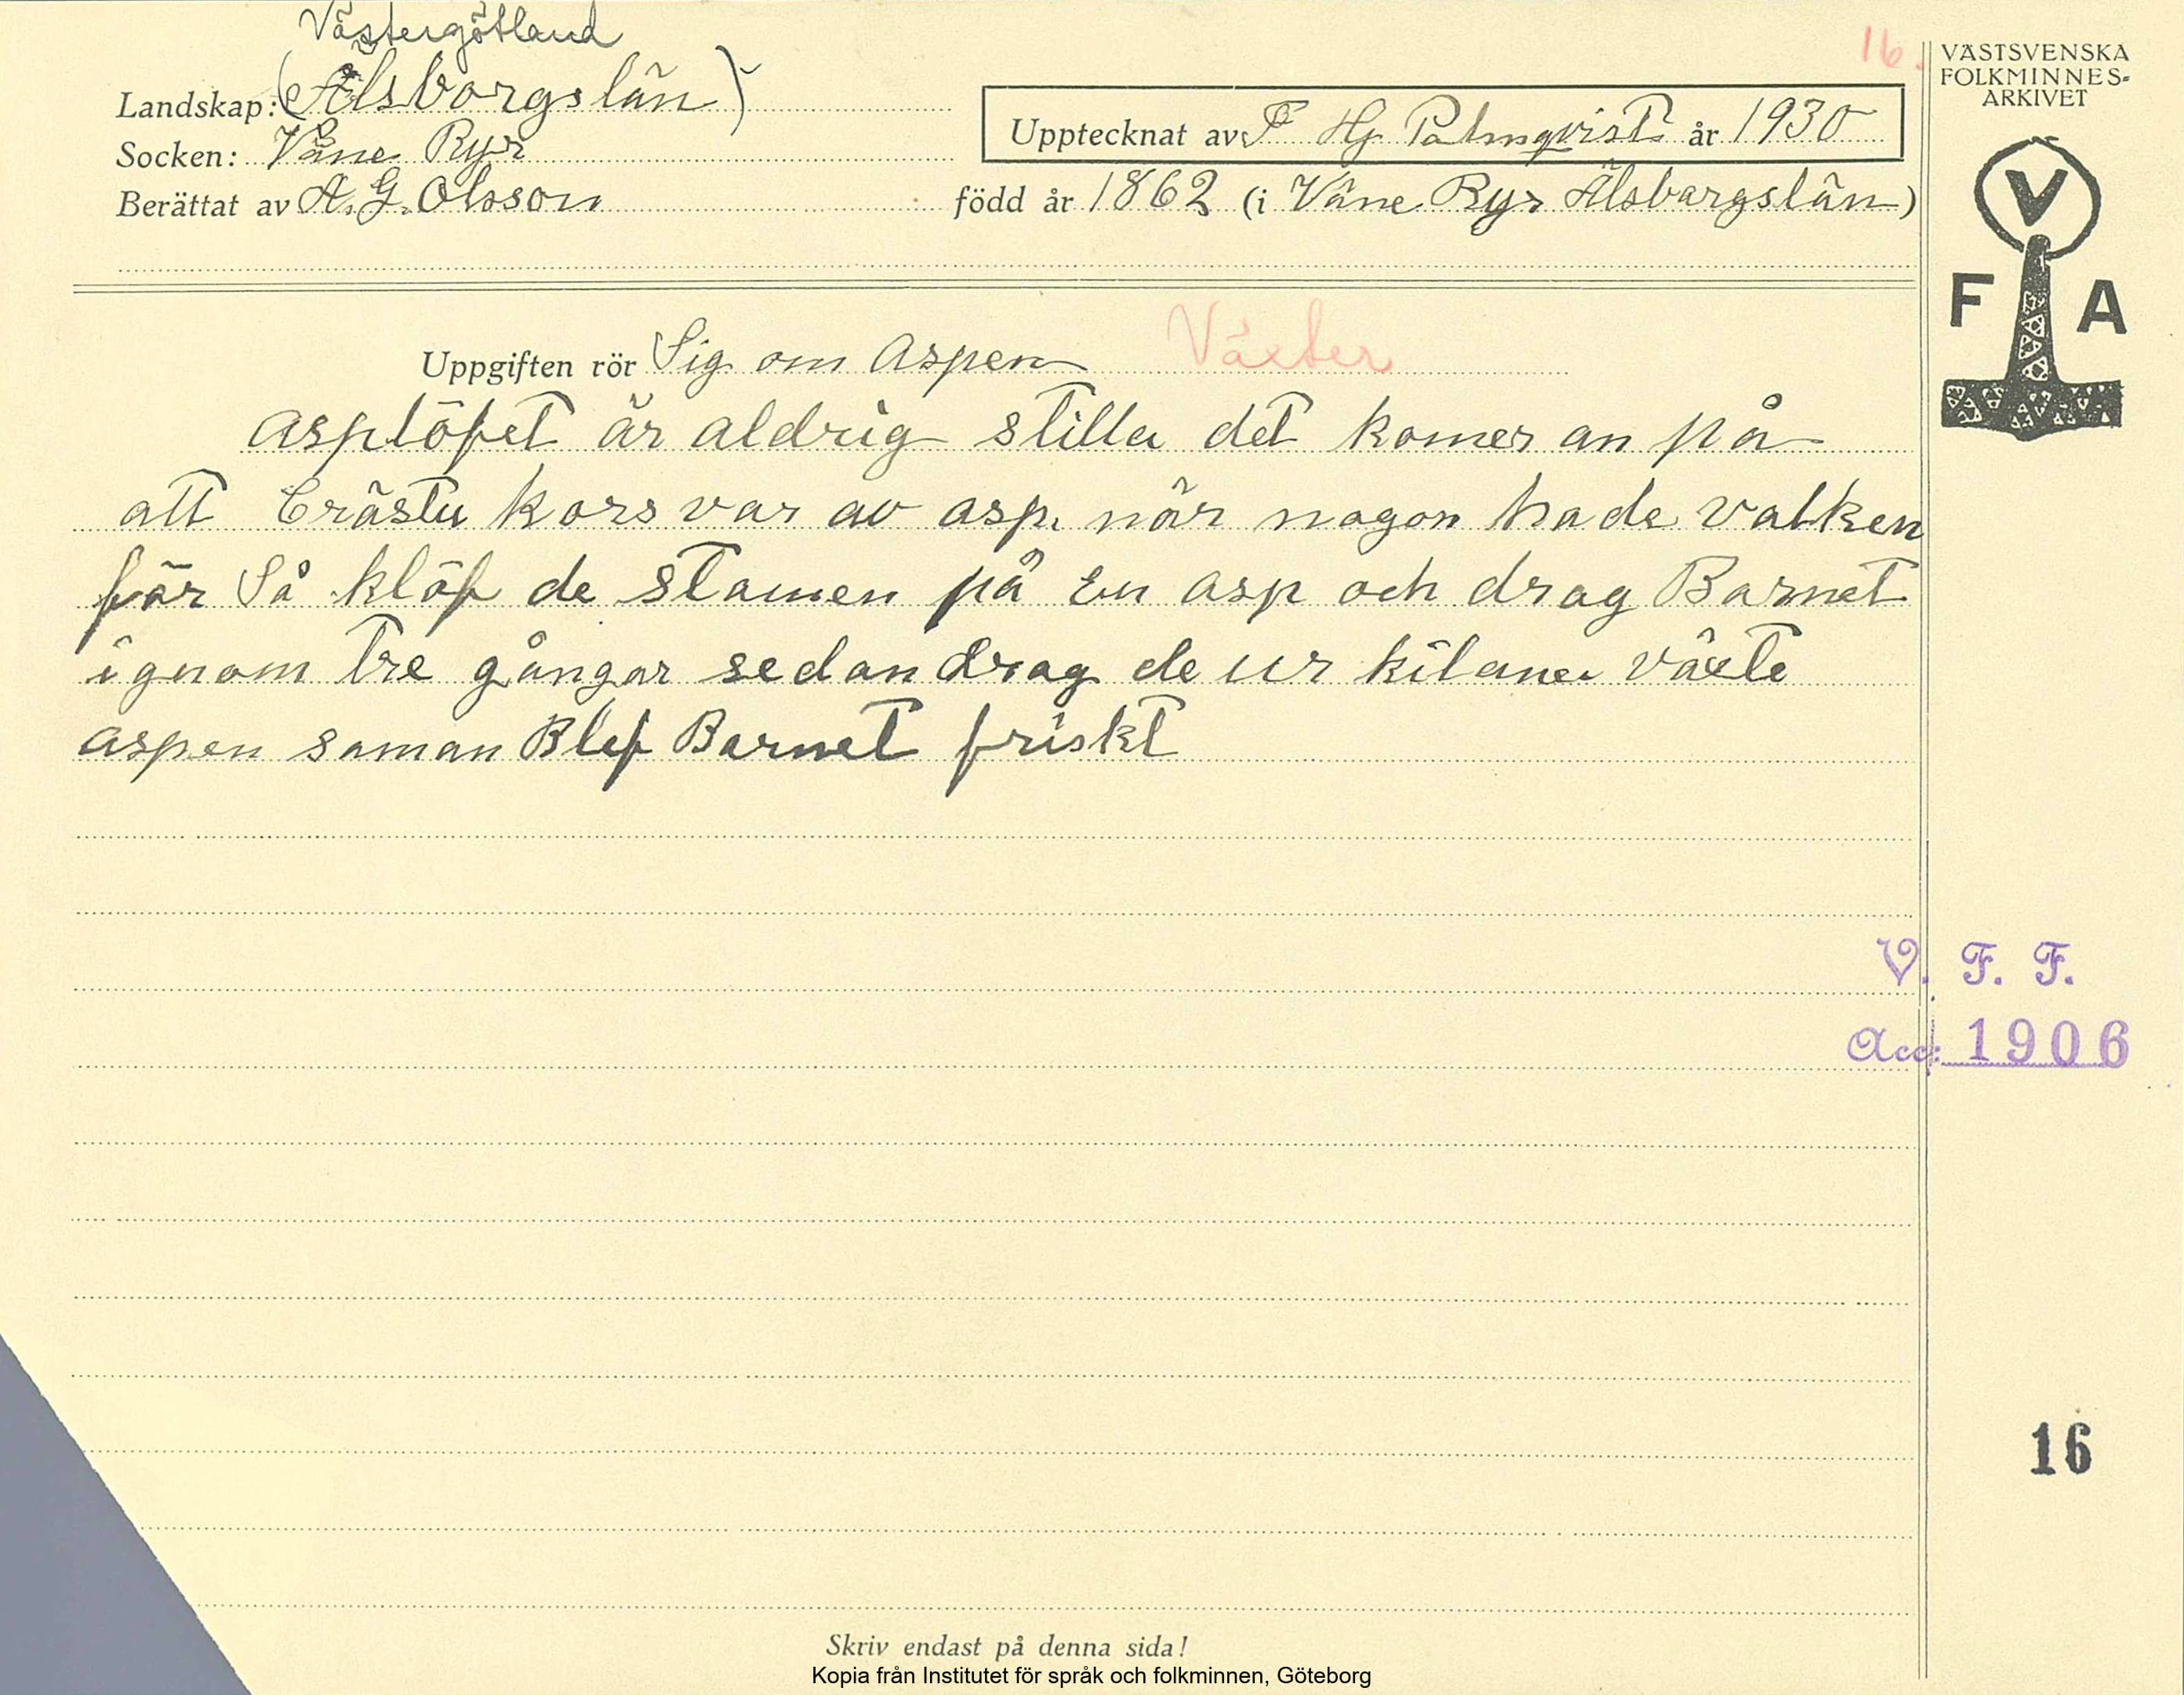 Västergötland
16.
VÄSTSVENSKA
FOLKMINNES-
ARKIVET
Landskap: (Älsborgslän)
Upptecknat av F Hj Palmqvist år 1930
Socken: Väne Ryr
Berättat av A. G. Olsson född år 1862 (i Väne Ryr Älsborgslän)
V
F A
Uppgiften rör Sig om Aspen Växter
Asplöfvet är aldrig stilla det komer an på
att Crästu kors var av asp. när nagon hade valken
för Så klöf de stamen på En asp och drog Barnet
ignom tre gångar sedan drog de ur kilana växte
aspen saman Blef Barnet friskt
V. F. F.
Acc: 1906
16
Skriv endast på denna sida!
Kopia från Institutet för språk och folkminnen, Göteborg